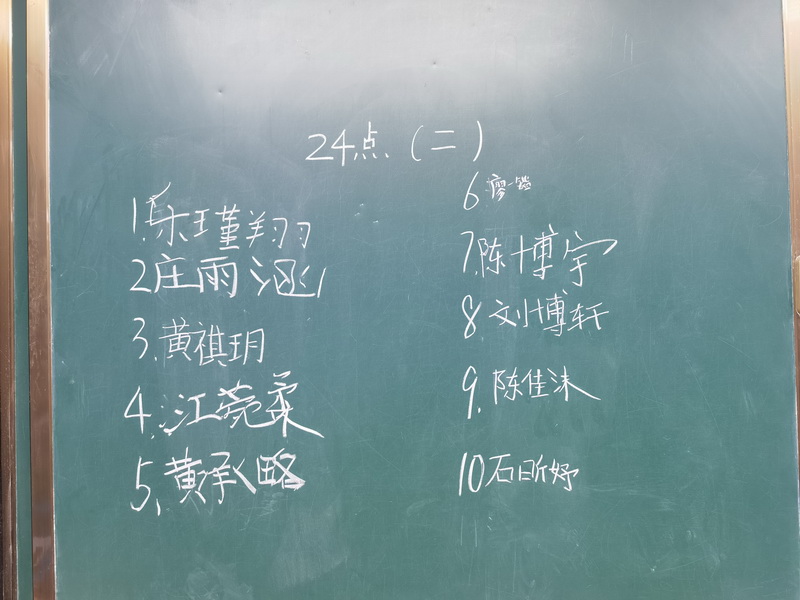 24点（二）
1.乐瑾翔
2庄雨涵
3.黄祺玥
4.江莞柔
5.黄承略
6廖一
7.陈博宇
8 刘博轩
9.陈佳沫
10石昕妤